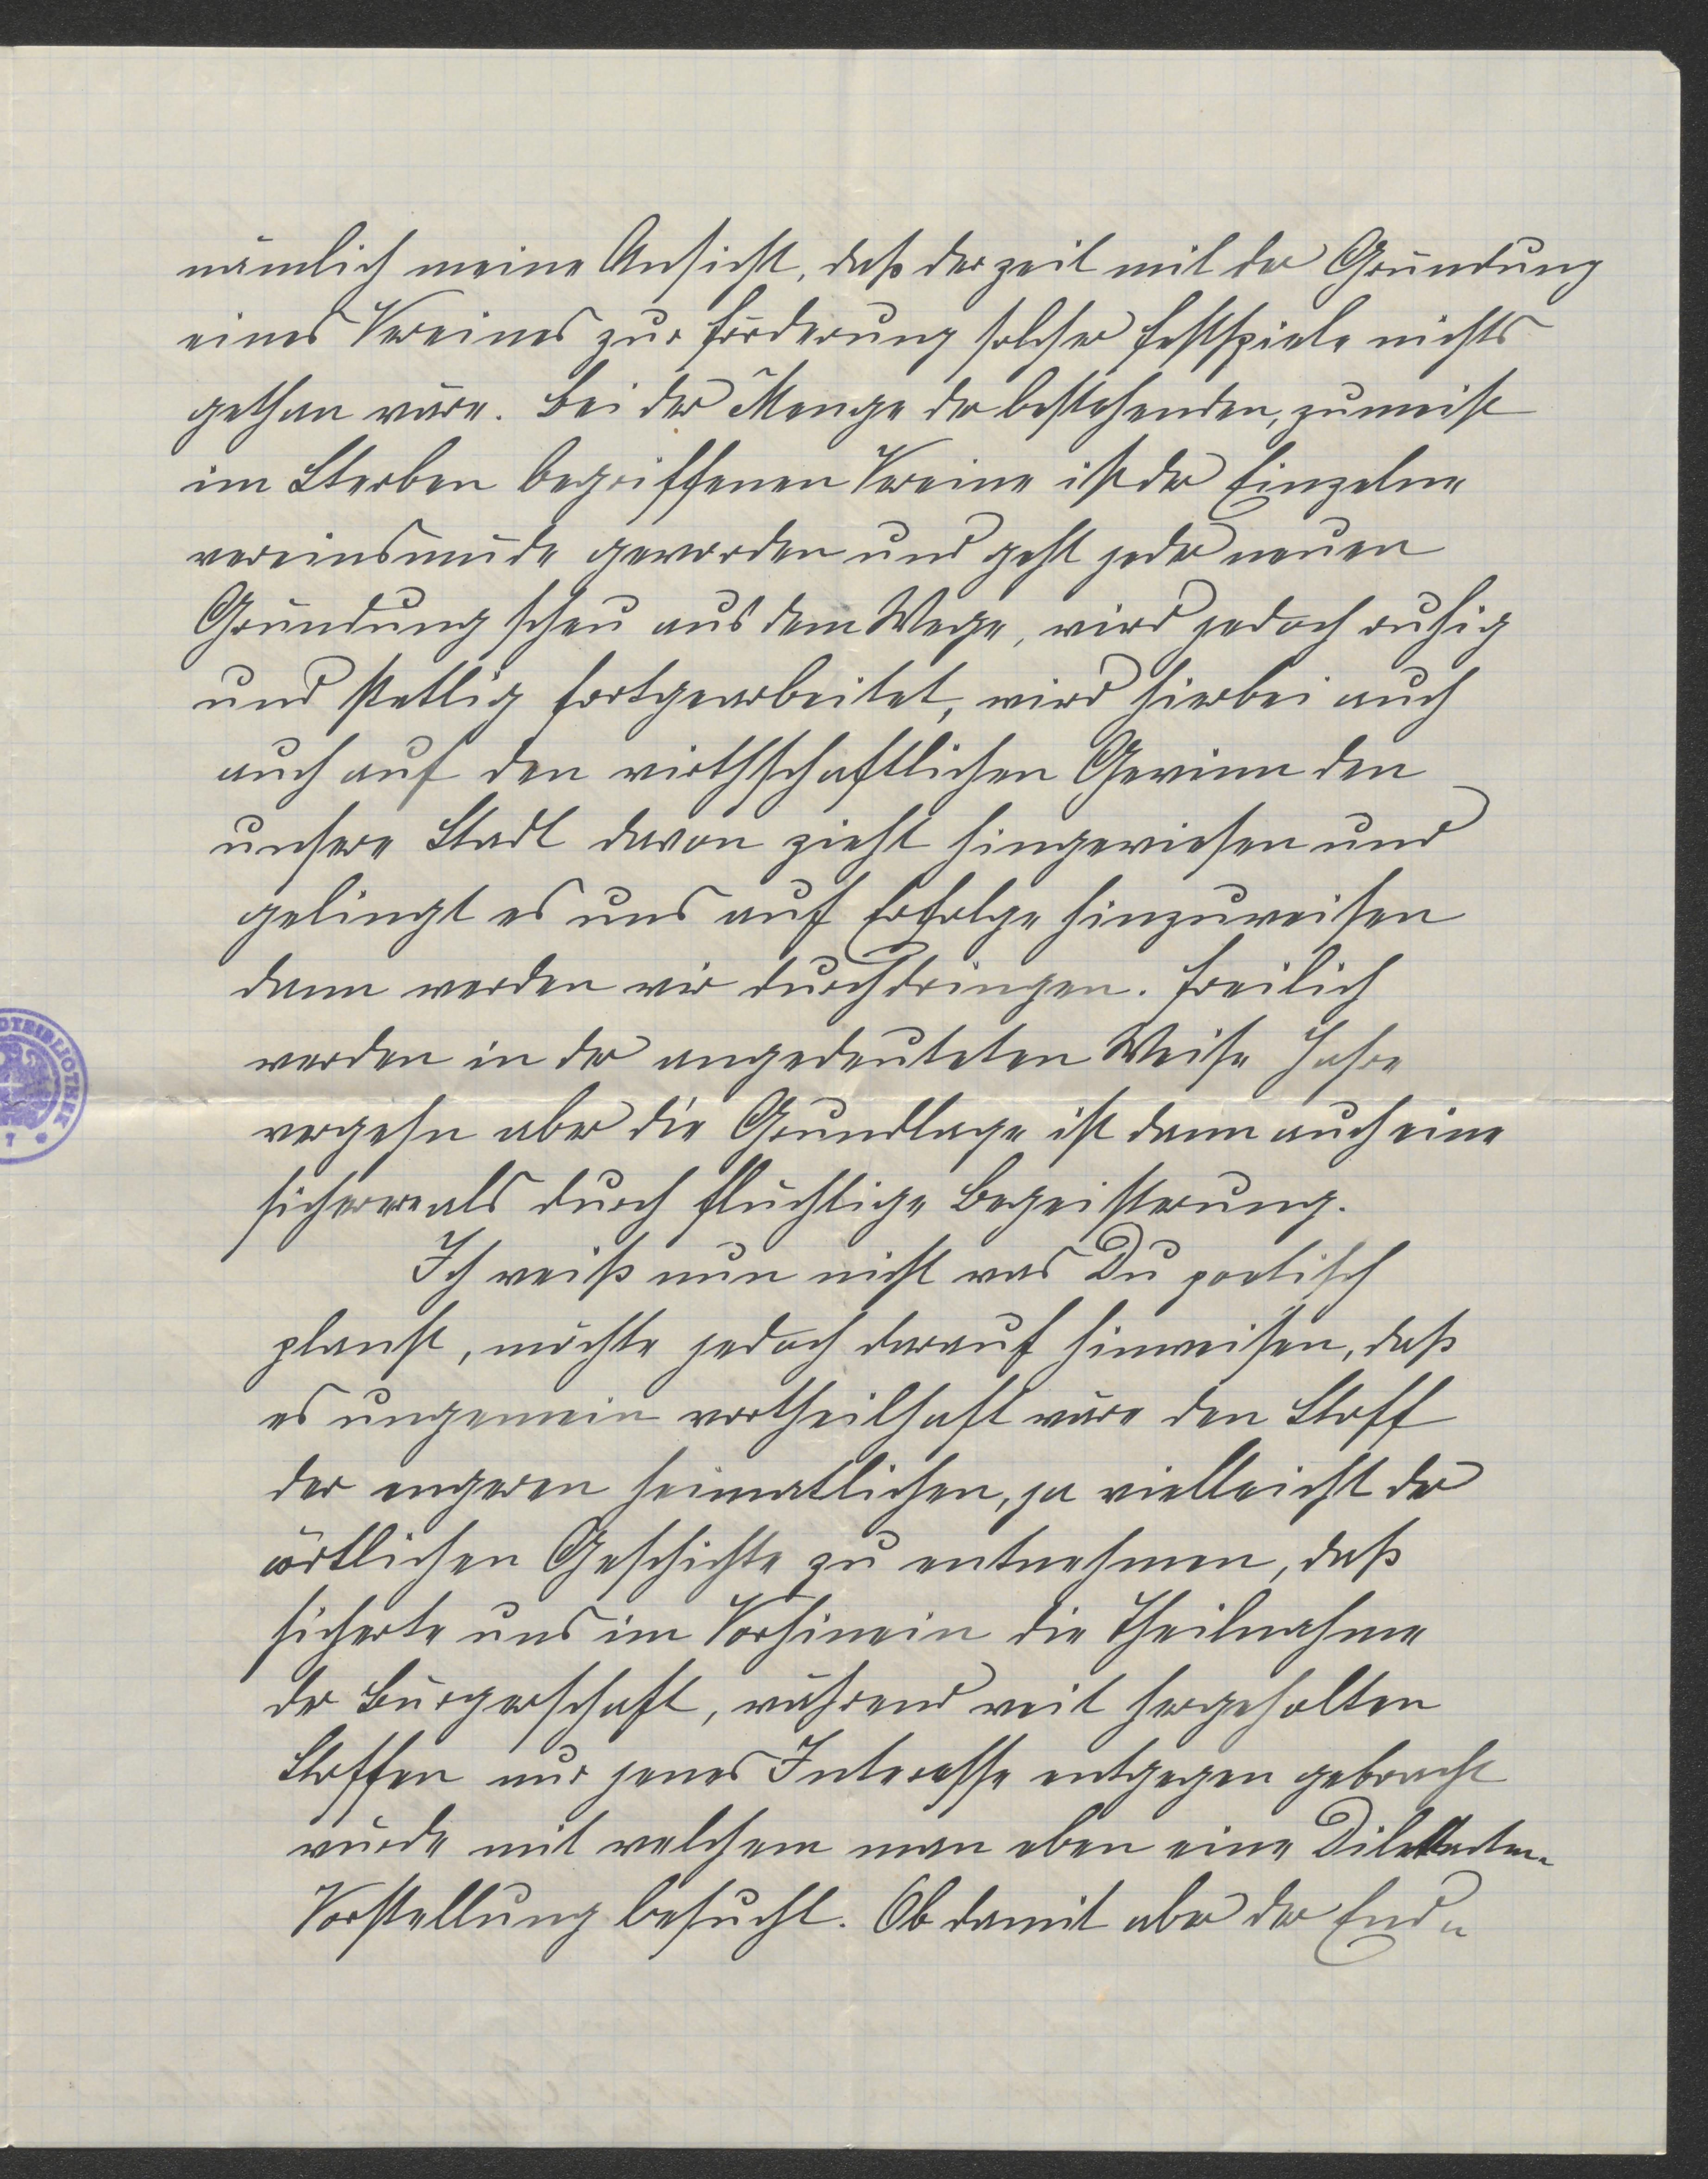 nämlich meine Ansicht, daß derzeit mit der Gründung
eines Vereines zur Förderung solcher Festspiele nichts
gethan wäre. Bei der Menge der bestehenden, zumeist
im Sterben begriffenen Vereine ist der Einzelne
vereinsmüde geworden und geht jeder neuen
Gründung scheu aus dem Wege, wird jedoch ruhig
und stettig fortgearbeitet, wird hierbei auch
auch auf den wirthschaftlichen Gewinn den
unsere Stadt davon zieht hingewiesen und
gelingt es uns auf Erfolge hinzuweisen
dann werden wir durchdringen. Freilich
werden in der angedeuteten Weise Jahre
vergehn aber die Grundlage ist dann auch eine
sicherere als durch flüchtige Begeisterung.
Ich weiß nun nicht was Du poetisch
planst, möchte jedoch darauf hinweisen, daß
es ungemein vortheilhaft wäre den Stoff
der engeren heimatlichen, ja vielleicht der
örtlichen Geschichte zu entnehmen, daß
sicherte uns im Vorhinein die Theilnahme
der Bürgerschaft, während weit hergeholten
Stoffen nur jenes Interesse entgegen gebracht
würde mit welchem man eben eine Dilettanten-
Vorstellung besucht. Ob damit aber der End-